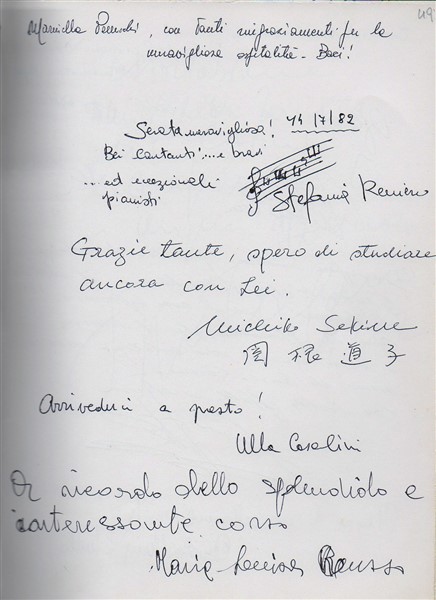 49
Mariella , con tanti ringraziamenti per la
meravigliosa ospitalità - Baci!
Serata meravigliosa! 14/7/82
Bei cantanti!....e bravi
...ed eccezionali
pianisti
Stefania
Grazie tante, spero di studiare
ancora con Lei.
Michiko Sekine
関 根 道 子
Arrivederci a presto!
Ulla Casalini
A ricordo dello splendido e
interessante corso
Maria